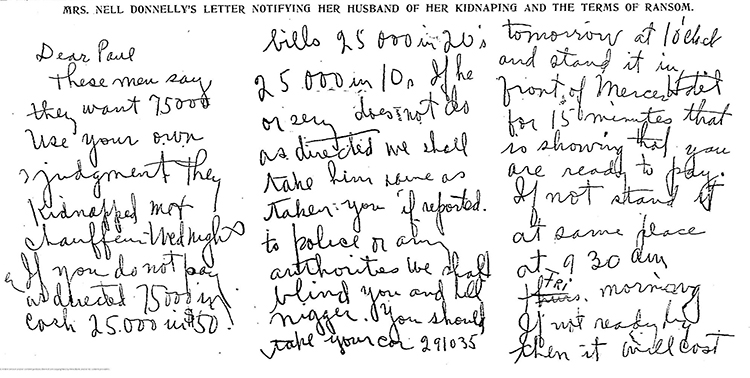 MRS. NELL DONNELLY'S LETTER NOTIFYING HER HUSBAND OF HER KIDNAPING AND THE TERMS OF RANSOM.
Dear Paul
These men say
they want 75000
Use your own
judgment They
Kidnapped me &
chauffeur Wed night
If you do not pay
as directed 75000 in
cash 25.000 in $50.
bills 25 000 in 20's
25 000 in 10s If he
or does not do
as directed we shall
take him same as
taken you if reported
to police or any
authorities we shall
blind you and kill
nigger. You should
take your car 291035
tomorrow at 10 o'clock
and stand it in
front of Mercer
for 15 minutes that
so showing that you
are ready to pay.
If not stand it
at same place
at 9 30 am
FRI
morning
If not ready by
then it will cost